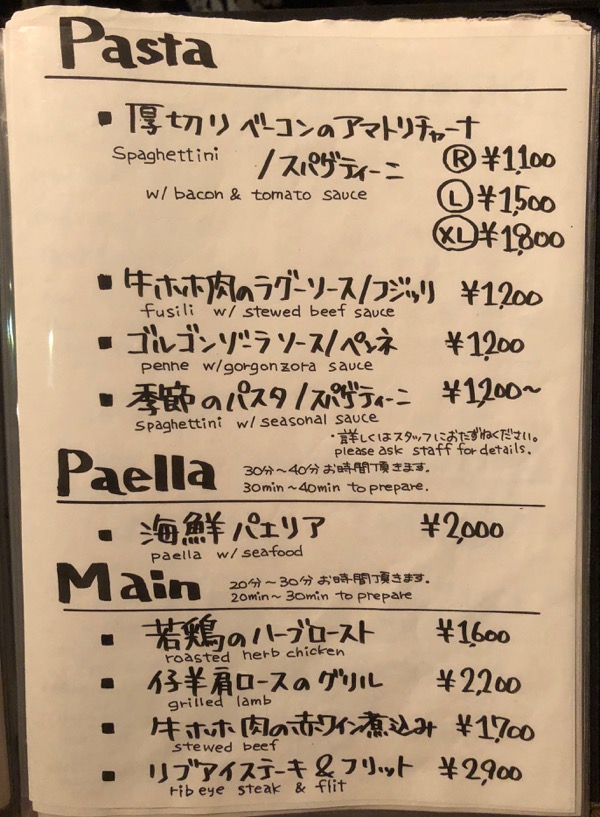 Pasta
■ 厚切りベーコンのアマトリチャーナ
Spaghettini /スパゲティーニ Ⓡ ¥1,100
w/ bacon & tomato sauce Ⓛ ¥1,500
XL ¥1,800
■ 牛ホホ肉のラグーソース/フジッリ ¥1,200
fusili w/ stewed beef sauce
■ ゴルゴンゾーラソース/ペンネ ¥1,200
penne w/gorgonzora sauce
■ 季節のパスタ/スパゲティーニ ¥1,200~
spaghettini w/ seasonal sauce
・詳しくはスタッフにおたずねください。
please ask staff for details.
Paella 30分~40分お時間頂きます。
30min~40min to prepare.
■ 海鮮パエリア ¥2,000
paella w/ seafood
Main 20分~30分お時間頂きます。
20min~30min to prepare
■ 若鶏のハーブロースト ¥1,600
roasted herb chicken
■ 仔羊肩ロースのグリル ¥2,200
grilled lamb
■ 牛ホホ肉の赤ワイン煮込み ¥1,700
stewed beef
■ リブアイステーキ&フリット ¥2,900
rib eye steak & flit